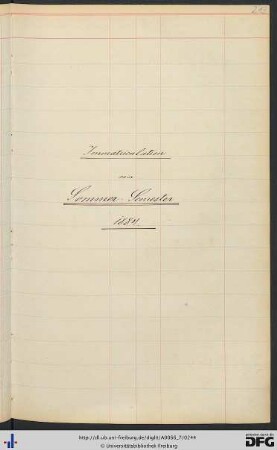 Immatriculation
Sommer-Semester
1884.
http://dl.ub.uni-freiburg.de/diglit/A0066_7/0244
© Universitätsbibliothek Freiburg
gefördert durch
DFG